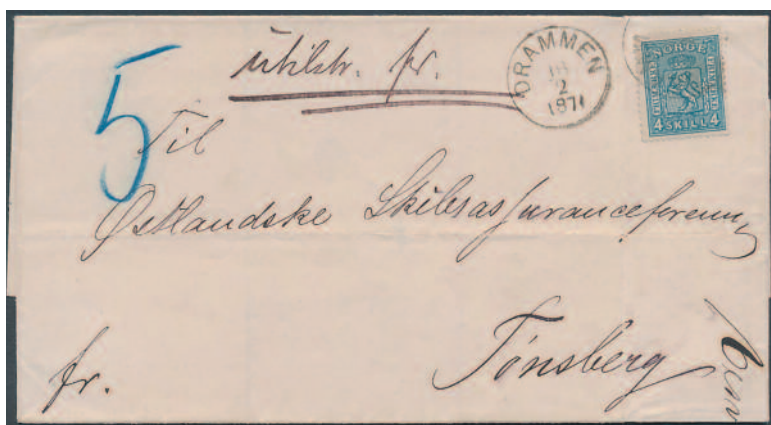 utilstr. fr.
DRAMMEN
2
1871
NORGE
4 SKILL 4
5
Til
Østlandske Skibsassuranceforening
Tönsberg
fr.